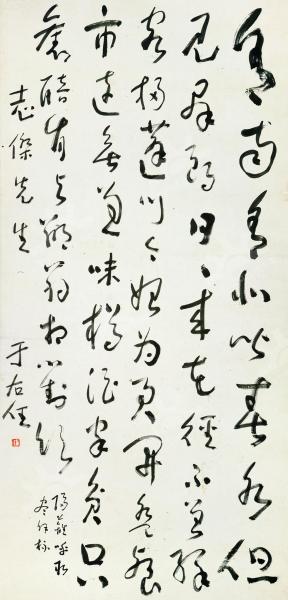 舍南舍北皆春水但
見群鷗日日來花徑不曾緣
客掃蓬門今始為君開盤飧
市遠無兼味樽酒家貧只
舊醅肯與鄰翁相對飲
志傑先生
于右任
隔籬呼取
盡餘杯